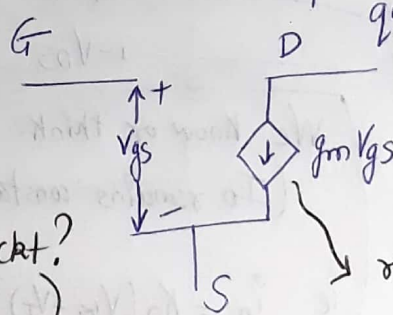 G
D
q
+
Vgs
gm Vgs
-
ckt?
)
S